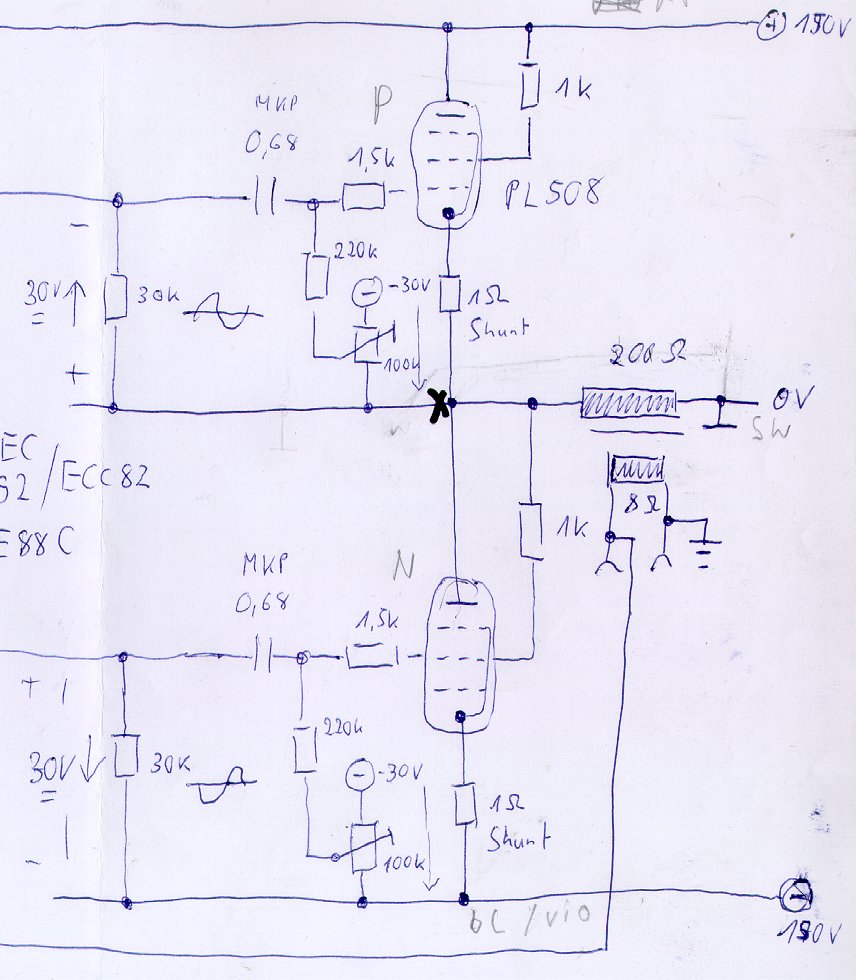 + 150V
1k
MKP
0,68
P
1,5k
PL508
-
220k
30V
=
30k
-
-30V
1Ω
Shunt
100k
+
200Ω
0V
SW
EC
82/ECC82
E88C
8Ω
1k
MKP
0,68
N
1,5k
+
220k
30V
=
30k
-
-30V
1Ω
Shunt
100k
-
bl/vio
-
150V